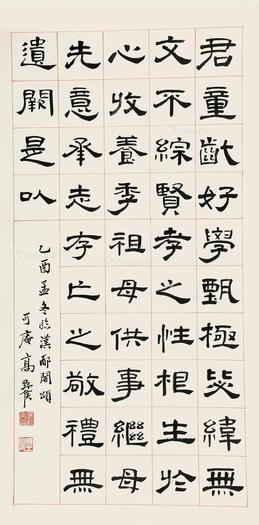 君童齔好學甄極毖緯無
文不綜賢孝之性相生於
心收養季祖母供事繼母
先意承志存亡之敬禮無
遺闕是以
乙酉孟冬臨漢郙閣頌
可庵高野侯